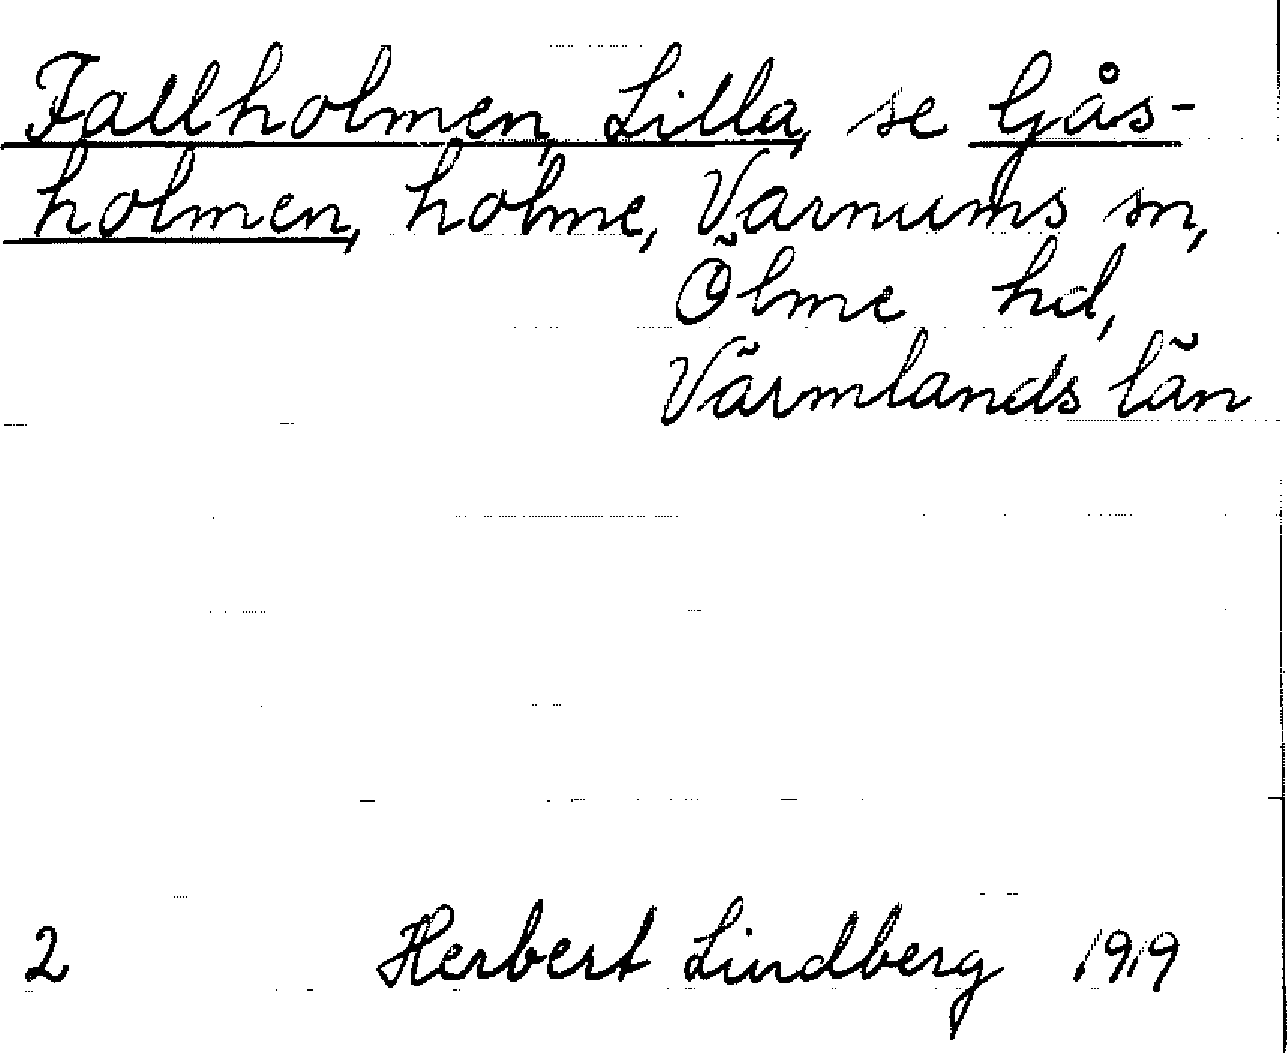 Fallholmen, Lilla, se Gås-
holmen, holme, Varnums sn,
Ölme hd,
Värmlands län
2 Herbert Lindberg 1919